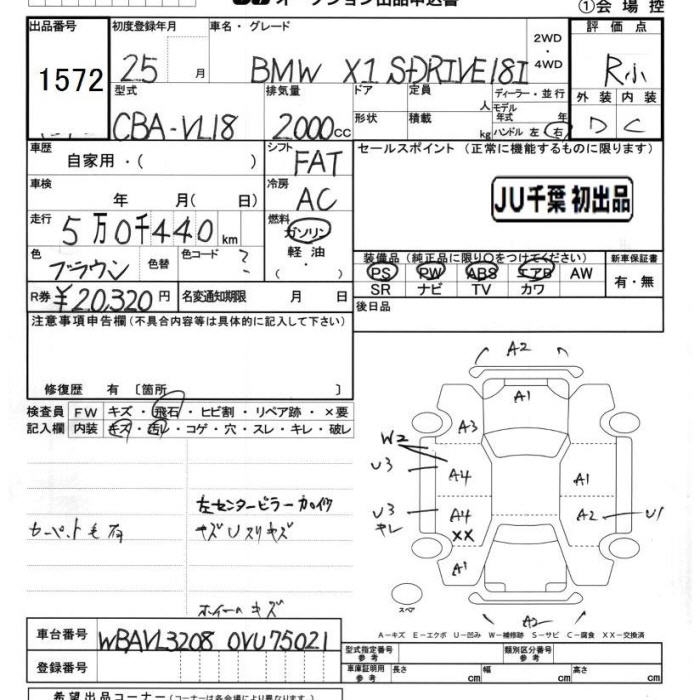 オークション出品申込書
①会場控
出品番号 初度登録年月 車名・グレード 2WD・4WD 評価点
1572 25 月 BMW X1 S-DRIVE18I R小
型式 排気量 ドア 定員 人 ディーラー・並行 外装 内装
CBA-VL18 2000cc 形状 積載 kg モデル年式 年 ハンドル 左 右 D C
車歴 自家用・( ) シフト FAT セールスポイント (正常に機能するものに限ります)
車検 年 月( 日) 冷房 AC JU千葉 初出品
走行 5万0千440km 燃料 ガソリン 軽油 ( ・ )
色 ブラウン 色替 色コード ? 装備品 (純正品に限り○をつけてください) 新車保証書
PS PW ABS エアB AW 有・無
SR ナビ TV カワ
R券 ¥20,320円 名変通知期限 月 日 後日品
注意事項申告欄 (不具合内容等は具体的に記入して下さい)
修復歴 有 〔箇所 〕
検査員 FW キズ・飛石・ヒビ割・リペア跡・×要
記入欄 内装 キズ・汚レ・コゲ・穴・スレ・キレ・破レ
左センターピラー カロイタ
カーペット毛有 キズUスリキズ
ホイールキズ
A2
A1
A3
W2
U3 A4 A1
U3 A4 A2 U1
キレ XX
A1
スペア
A2
A-キズ E-エクボ U-凹み W-補修跡 S-サビ C-腐食 XX-交換済
車台番号 WBAVL3208 0VU75021 型式指定番号 参考 類別区分番号 参考
登録番号 車庫証明用 参考 長さ cm 幅 cm 高さ cm
希望出品コーナー(コーナーは各会場により異なります。)